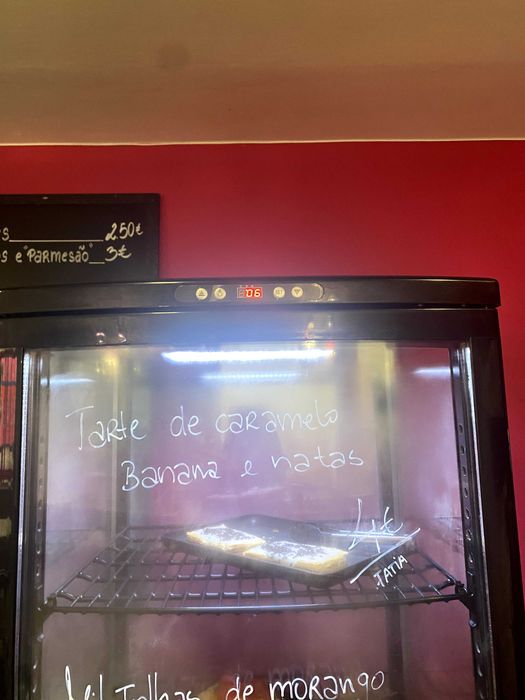 2.50€
e "Parmesão" 3€
06
Tarte de caramelo
Banana e natas
4€
Fatia
Mil Folhas de morango